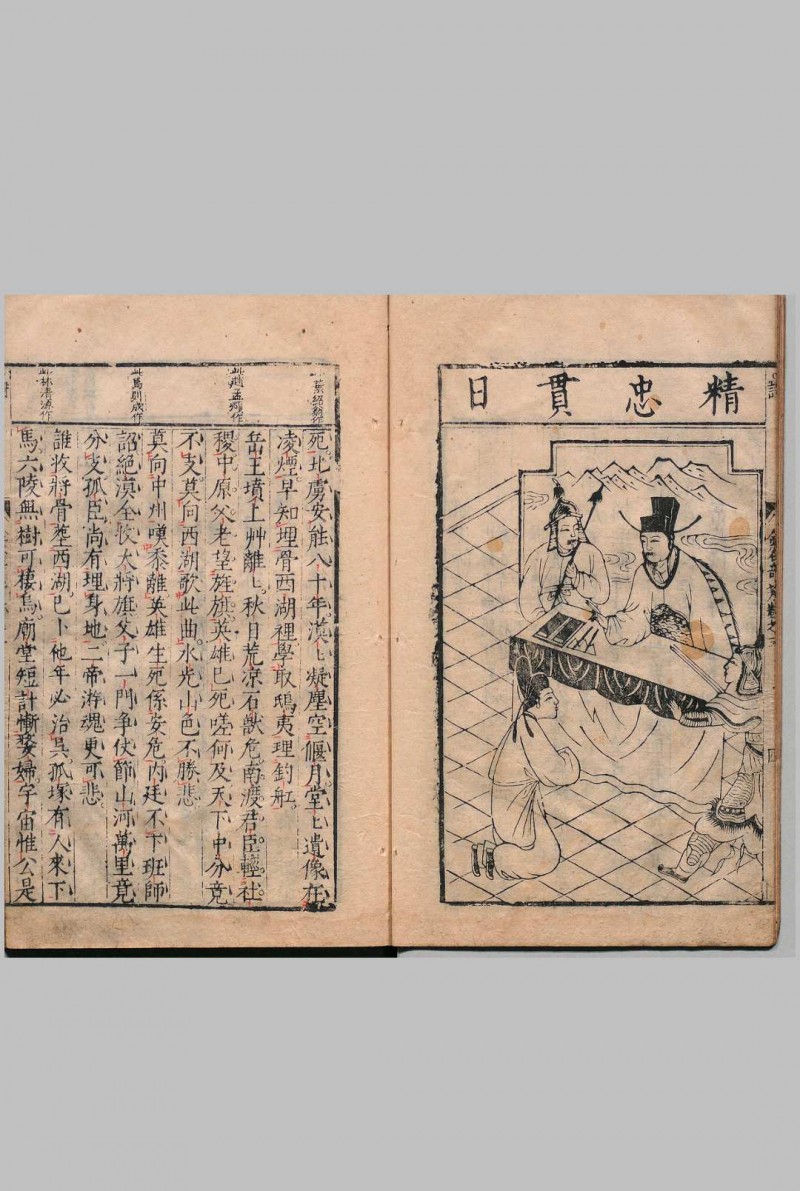 精忠貫日
此葉紹翁作
此趙孟頫作
此高則成作
此林清源作
死北虜安能八十年漠〻凝塵空偃月堂〻遺像在
凌煙早知埋骨西湖裡學取鴟夷理釣舡
岳王墳上艸離〻秋日荒凉石獸危南渡君臣輕社
稷中原父老望旌旗英雄巳死嗟何及天下中分竟
不支莫向西湖歌此曲水光山色不勝悲
莫向中州嘆黍離英雄生死係安危內廷不下班師
詔絕漠全收大將旗父子一門爭伏節山河萬里竟
分支孤臣尚有埋身地二帝游魂更可悲
誰收將骨塟西湖巳卜他年必沼吳孤塚有人來下
馬六陵無樹可棲烏廟堂短計慚嫠婦宇宙惟公是